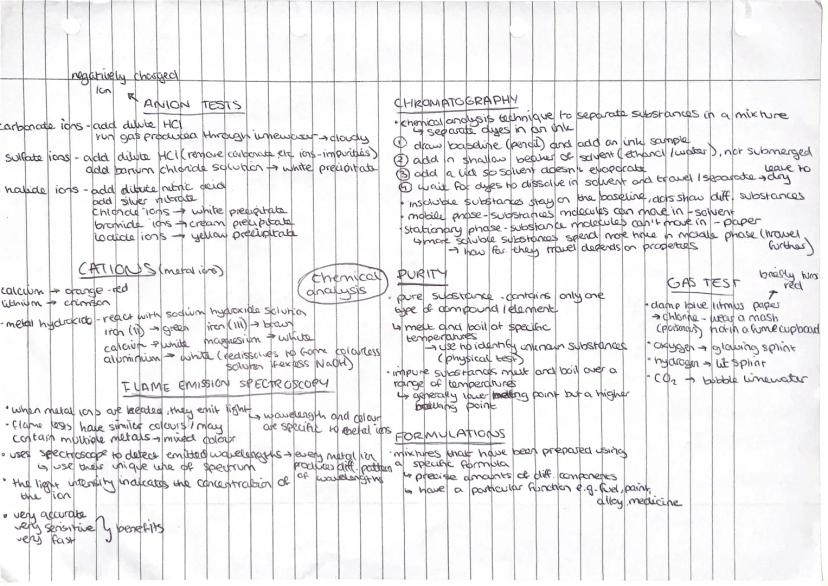 negatively charged
ion
ANION TESTS
carbonate ions - add dilute HCl
run gas produced through limewater → cloudy
sulfate ions - add dilute HCl (remove carbonate etc ions - impurities)
add barium chloride solution → white precipitate
halide ions - add dilute nitric acid
add silver nitrate
chloride ions → white precipitate
bromide ions → cream precipitate
iodide ions → yellow precipitate
CATIONS (metal ions)
calcium → orange-red
lithium → crimson
- metal hydroxide - react with sodium hydroxide solution
iron (II) → green iron (III) → brown
calcium → white magnesium → white
aluminium → white (redissolves to form colourless
solution if excess NaOH)
FLAME EMISSION SPECTROSCOPY
• when metal ions are heated, they emit light ↳ wavelength and colour
are specific to metal ions
• flame tests have similar colours / may
contain multiple metals → mixed colour
• uses spectroscope to detect emitted wavelengths → every metal ion
produces diff. pattern
of wavelengths
↳ use their unique line of spectrum
• the light intensity indicates the concentration of
the ion
• very accurate
very sensitive } benefits
very fast
Chemical
analysis
CHROMATOGRAPHY
• chemical analysis technique to separate substances in a mixture
↳ separate dyes in an ink
① draw baseline (pencil) and add an ink sample
② add in shallow beaker of solvent (ethanol/water), not submerged
③ add a lid so solvent doesn't evaporate
④ wait for dyes to dissolve in solvent and travel / separate → leave to
dry
• insoluble substances stay on the baseline, dots show diff. substances
• mobile phase - substances molecules can move in - solvent
• stationary phase - substance molecules can't move in - paper
↳ more soluble substances spend more time in mobile phase (travel
further)
→ how far they travel depends on properties
PURITY
• pure substance - contains only one
type of compound / element
↳ melt and boil at specific
temperatures
→ use to identify unknown substances
(physical test)
• impure substances melt and boil over a
range of temperatures
↳ generally lower melting point but a higher
boiling point
FORMULATIONS
• mixtures that have been prepared using
a specific formula
↳ precise amounts of diff. components
↳ have a particular function e.g. fuel, paint,
alloy, medicine
GAS TEST
briefly turns
red
• damp blue litmus paper
→ chlorine - wear a mask
(poisonous) not in a fume cupboard
• oxygen → glowing splint
• hydrogen → lit splint
• CO₂ → bubble limewater